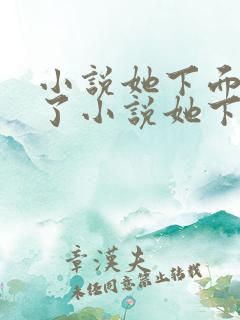 小說她下面
了小說她下
章漢夫
未经同意禁止转载